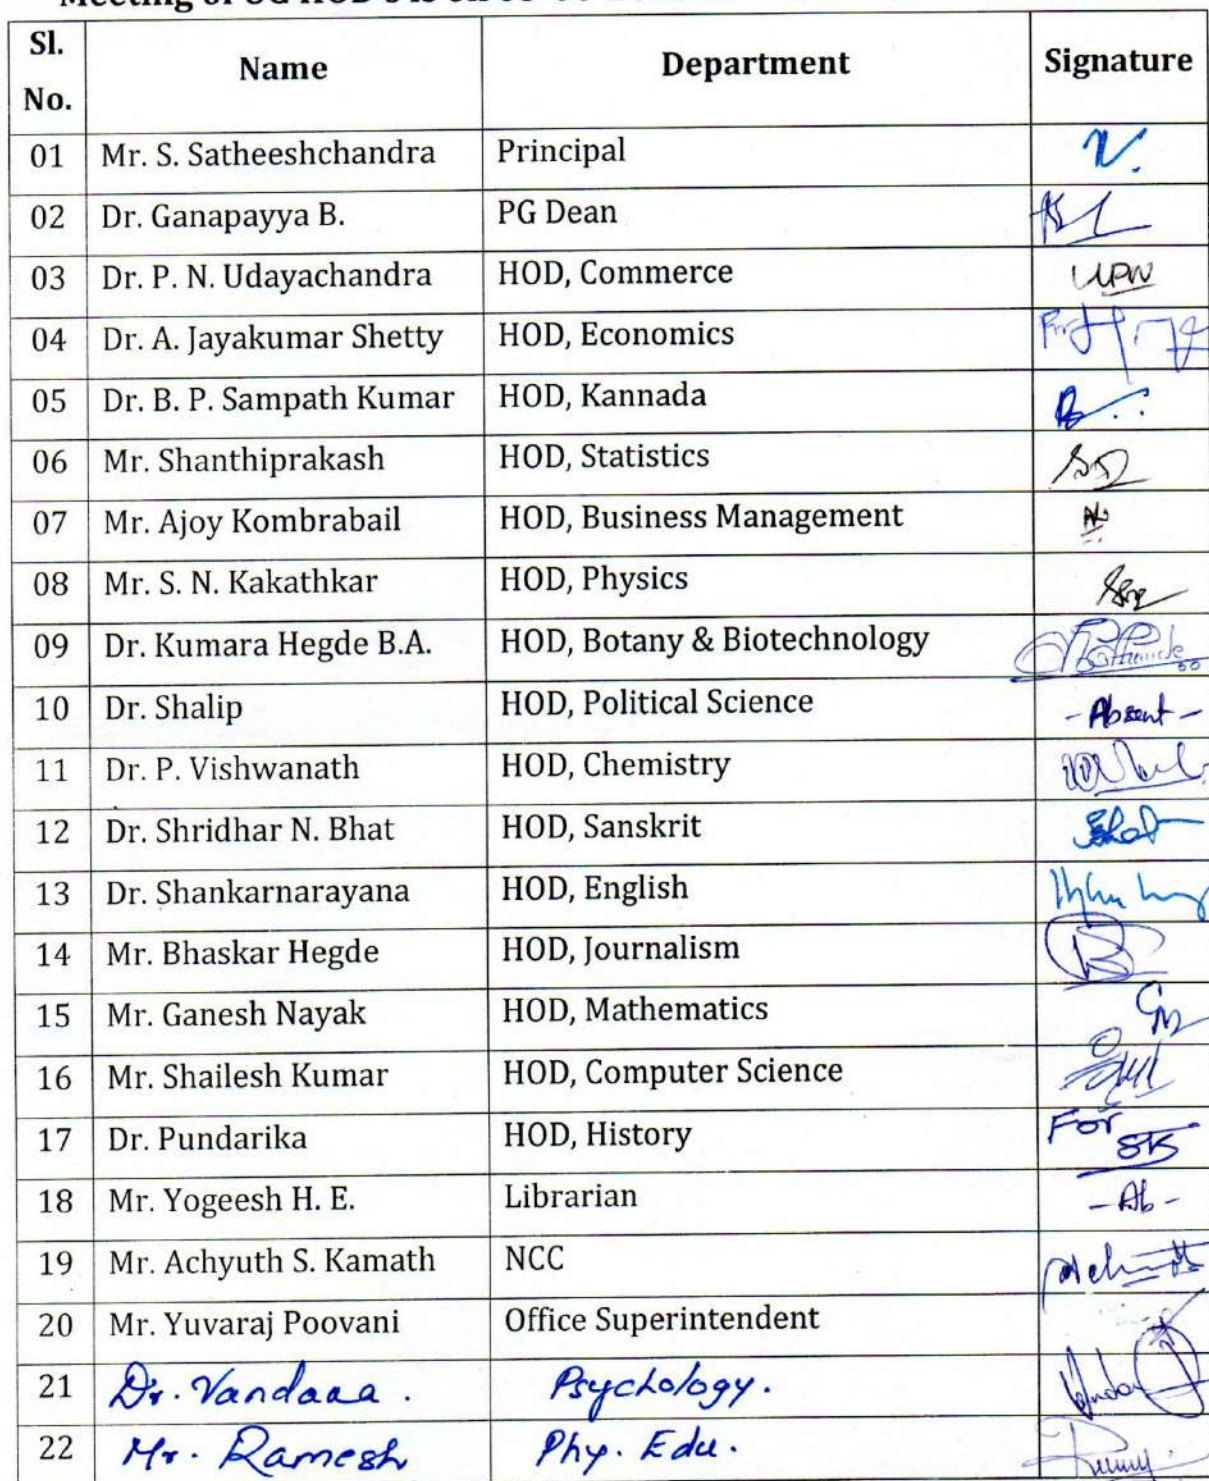 Meeting of UG HOD's is on
Sl. No. Name Department Signature
01 Mr. S. Satheeshchandra Principal
02 Dr. Ganapayya B. PG Dean
03 Dr. P. N. Udayachandra HOD, Commerce UPN
04 Dr. A. Jayakumar Shetty HOD, Economics For
05 Dr. B. P. Sampath Kumar HOD, Kannada
06 Mr. Shanthiprakash HOD, Statistics
07 Mr. Ajoy Kombrabail HOD, Business Management
08 Mr. S. N. Kakathkar HOD, Physics
09 Dr. Kumara Hegde B.A. HOD, Botany & Biotechnology
10 Dr. Shalip HOD, Political Science - Absent -
11 Dr. P. Vishwanath HOD, Chemistry
12 Dr. Shridhar N. Bhat HOD, Sanskrit
13 Dr. Shankarnarayana HOD, English
14 Mr. Bhaskar Hegde HOD, Journalism
15 Mr. Ganesh Nayak HOD, Mathematics
16 Mr. Shailesh Kumar HOD, Computer Science
17 Dr. Pundarika HOD, History For
18 Mr. Yogeesh H. E. Librarian - Ab -
19 Mr. Achyuth S. Kamath NCC
20 Mr. Yuvaraj Poovani Office Superintendent
21 Dr. Vandaaa . Psychology.
22 Mr. Ramesh Phy. Edu.